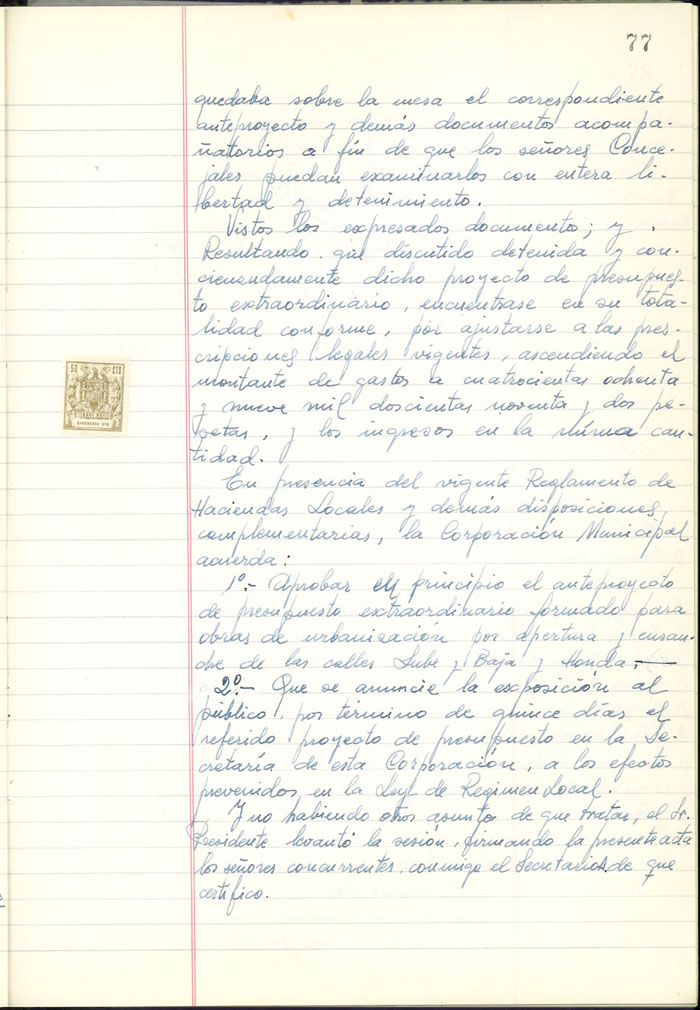 77
quedaba sobre la mesa el correspondiente
anteproyecto y demás documentos acompa-
ñatorios a fín de que los señores Conce-
jales puedan examinarlos con entera li-
bertad y detenimiento.
Vistos los expresados documento; y.
Resultando que discutido detenida y con-
cienzudamente dicho proyecto de presupues-
to extraordinario, encuéntrase en su tota-
lidad conforme, por ajustarse a las pres-
cripciones legales vigentes, ascendiendo el
montante de gastos a cuatrocientas ochenta
y nueve mil doscientas noventa y dos pe-
setas, y los ingresos en la misma can-
tidad.
En presencia del vigente Reglamento de
Haciendas Locales y demás disposiciones
complementarias, la Corporación Municipal
acuerda:
1º.- Aprobar en principio el anteproyecto
de presupuesto extraordinario formado para
obras de urbanización por apertura y ensan-
che de las calles Sube y Baja y Honda.-
2º.- Que se anuncie la exposición al
público, por término de quince días el
referido proyecto de presupuesto en la Se-
cretaría de esta Corporación, a los efectos
prevenidos en la Ley de Regimen Local.
Y no habiendo otros asuntos de que tratar, el Sr.
Presidente levantó la sesión, firmando la presente acta
los señores concurrentes, conmigo el Secretario, de que
certifico.
50 CTS